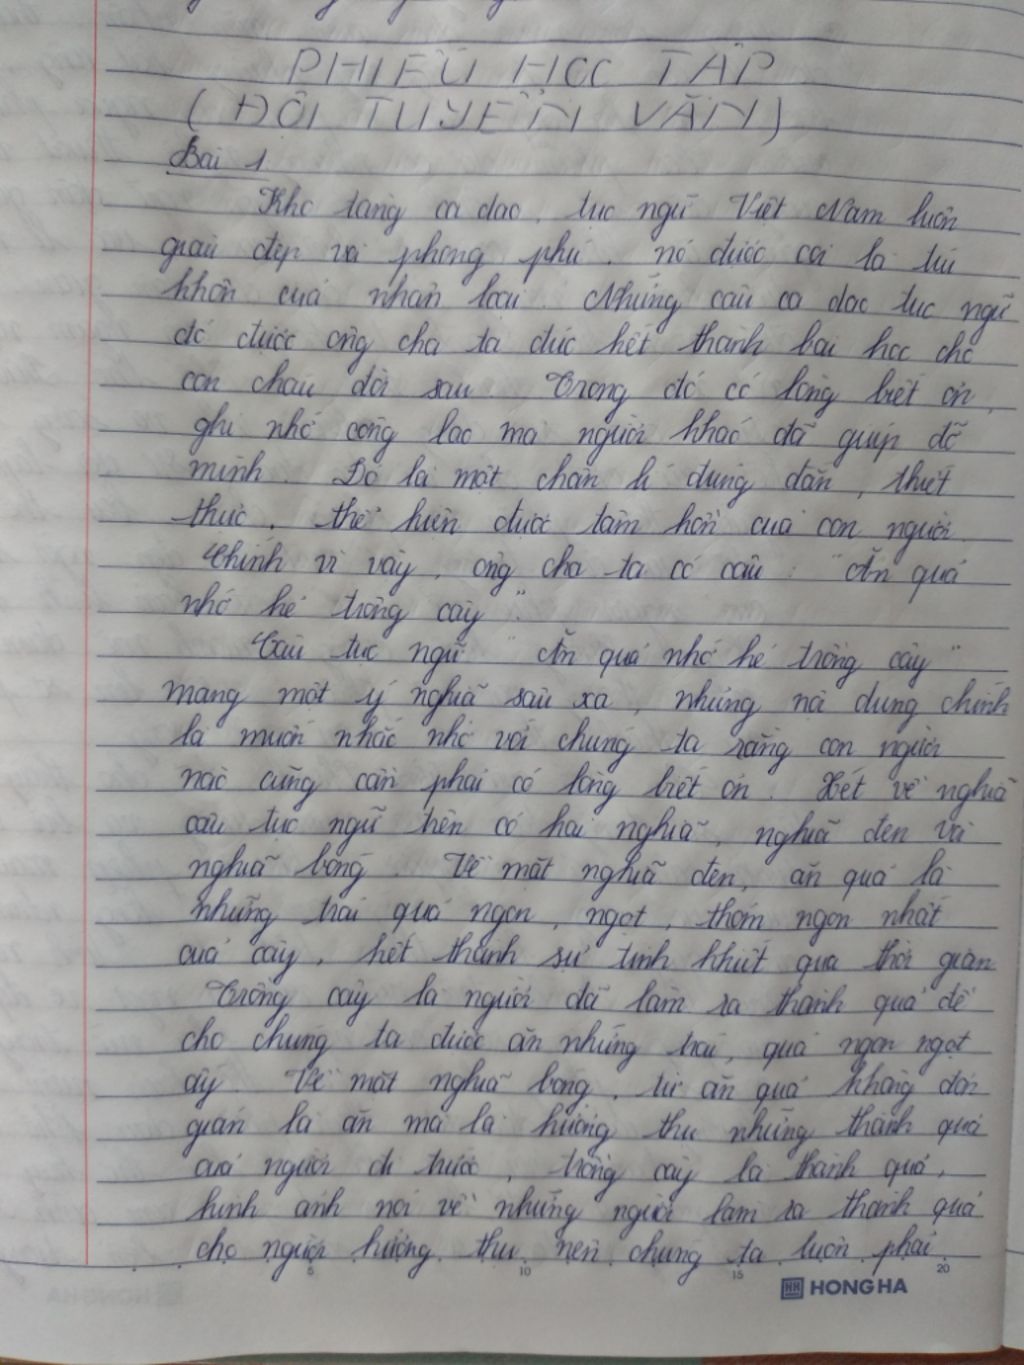 PHIẾU HỌC TẬP
(ĐỘI TUYỂN VĂN)
Bài 1
Kho tàng ca dao, tục ngữ Việt Nam luôn
giàu đẹp và phong phú, nó được coi là túi
khôn của nhân loại. Những câu ca dao tục ngữ
đó được ông cha ta đúc kết thành bài học cho
con cháu đời sau. Trong đó có lòng biết ơn,
ghi nhớ công lao mà người khác đã giúp đỡ
mình. Đó là một chân lí đúng đắn, thiết
thực, thể hiện được tâm hồn của con người.
Chính vì vậy, ông cha ta có câu: "Ăn quả
nhớ kẻ trồng cây".
Câu tục ngữ "Ăn quả nhớ kẻ trồng cây"
mang một ý nghĩa sâu xa, nhưng nội dung chính
là muốn nhắc nhở với chúng ta rằng con người
nào cũng cần phải có lòng biết ơn. Xét về nghĩa
câu tục ngữ trên có hai nghĩa, nghĩa đen và
nghĩa bóng. Về mặt nghĩa đen, ăn quả là
những trái quả ngon, ngọt, thơm ngon nhất
của cây, kết thành sự tinh khiết qua thời gian
Trồng cây là người đã làm ra thành quả để
cho chúng ta được ăn những trái, quả ngon ngọt
ấy. Về mặt nghĩa bóng, từ ăn quả không đơn
giản là ăn mà là hưởng thụ những thành quả
của người đi trước, trồng cây là thành quả,
hình ảnh nói về những người làm ra thành quả
cho người hưởng thụ nên chúng ta luôn phải
5 10 15 20
HONG HA